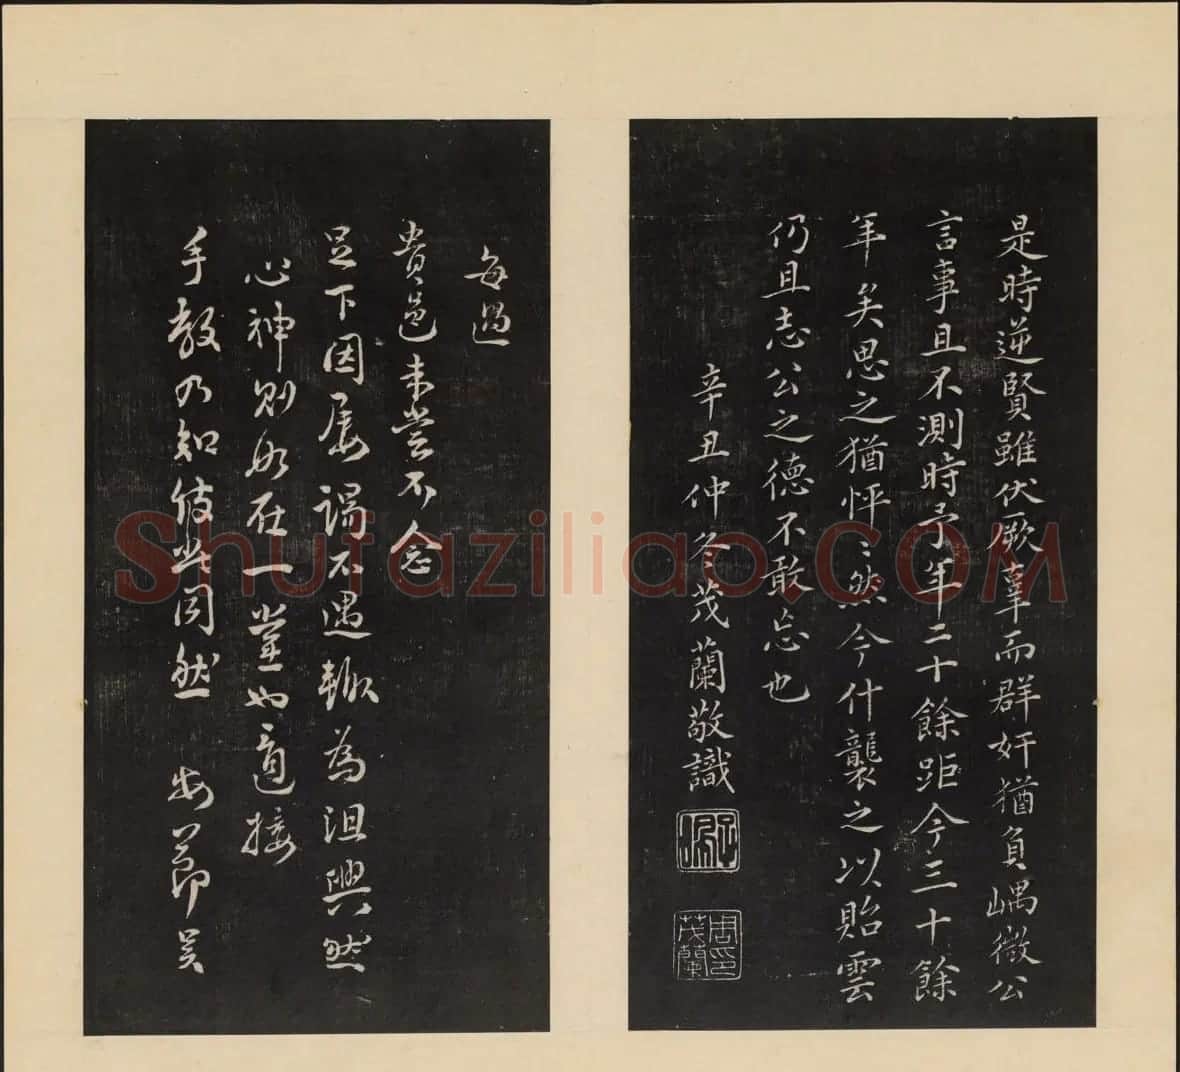 是時逆賢雖伏厥辜而群奸猶負嵎微公
言事且不測時予年二十餘距今三十餘
年矣思之猶怦〻然今什襲之以貽雲
仍且志公之德不敢忘也
辛丑仲冬茂蘭敬識
周茂蘭印
每過
貴邑未嘗不念
足下因屡謁不遇輒為沮興然
心神則如在一堂也適接
手教乃知彼此同然
Shufaziliao.COM